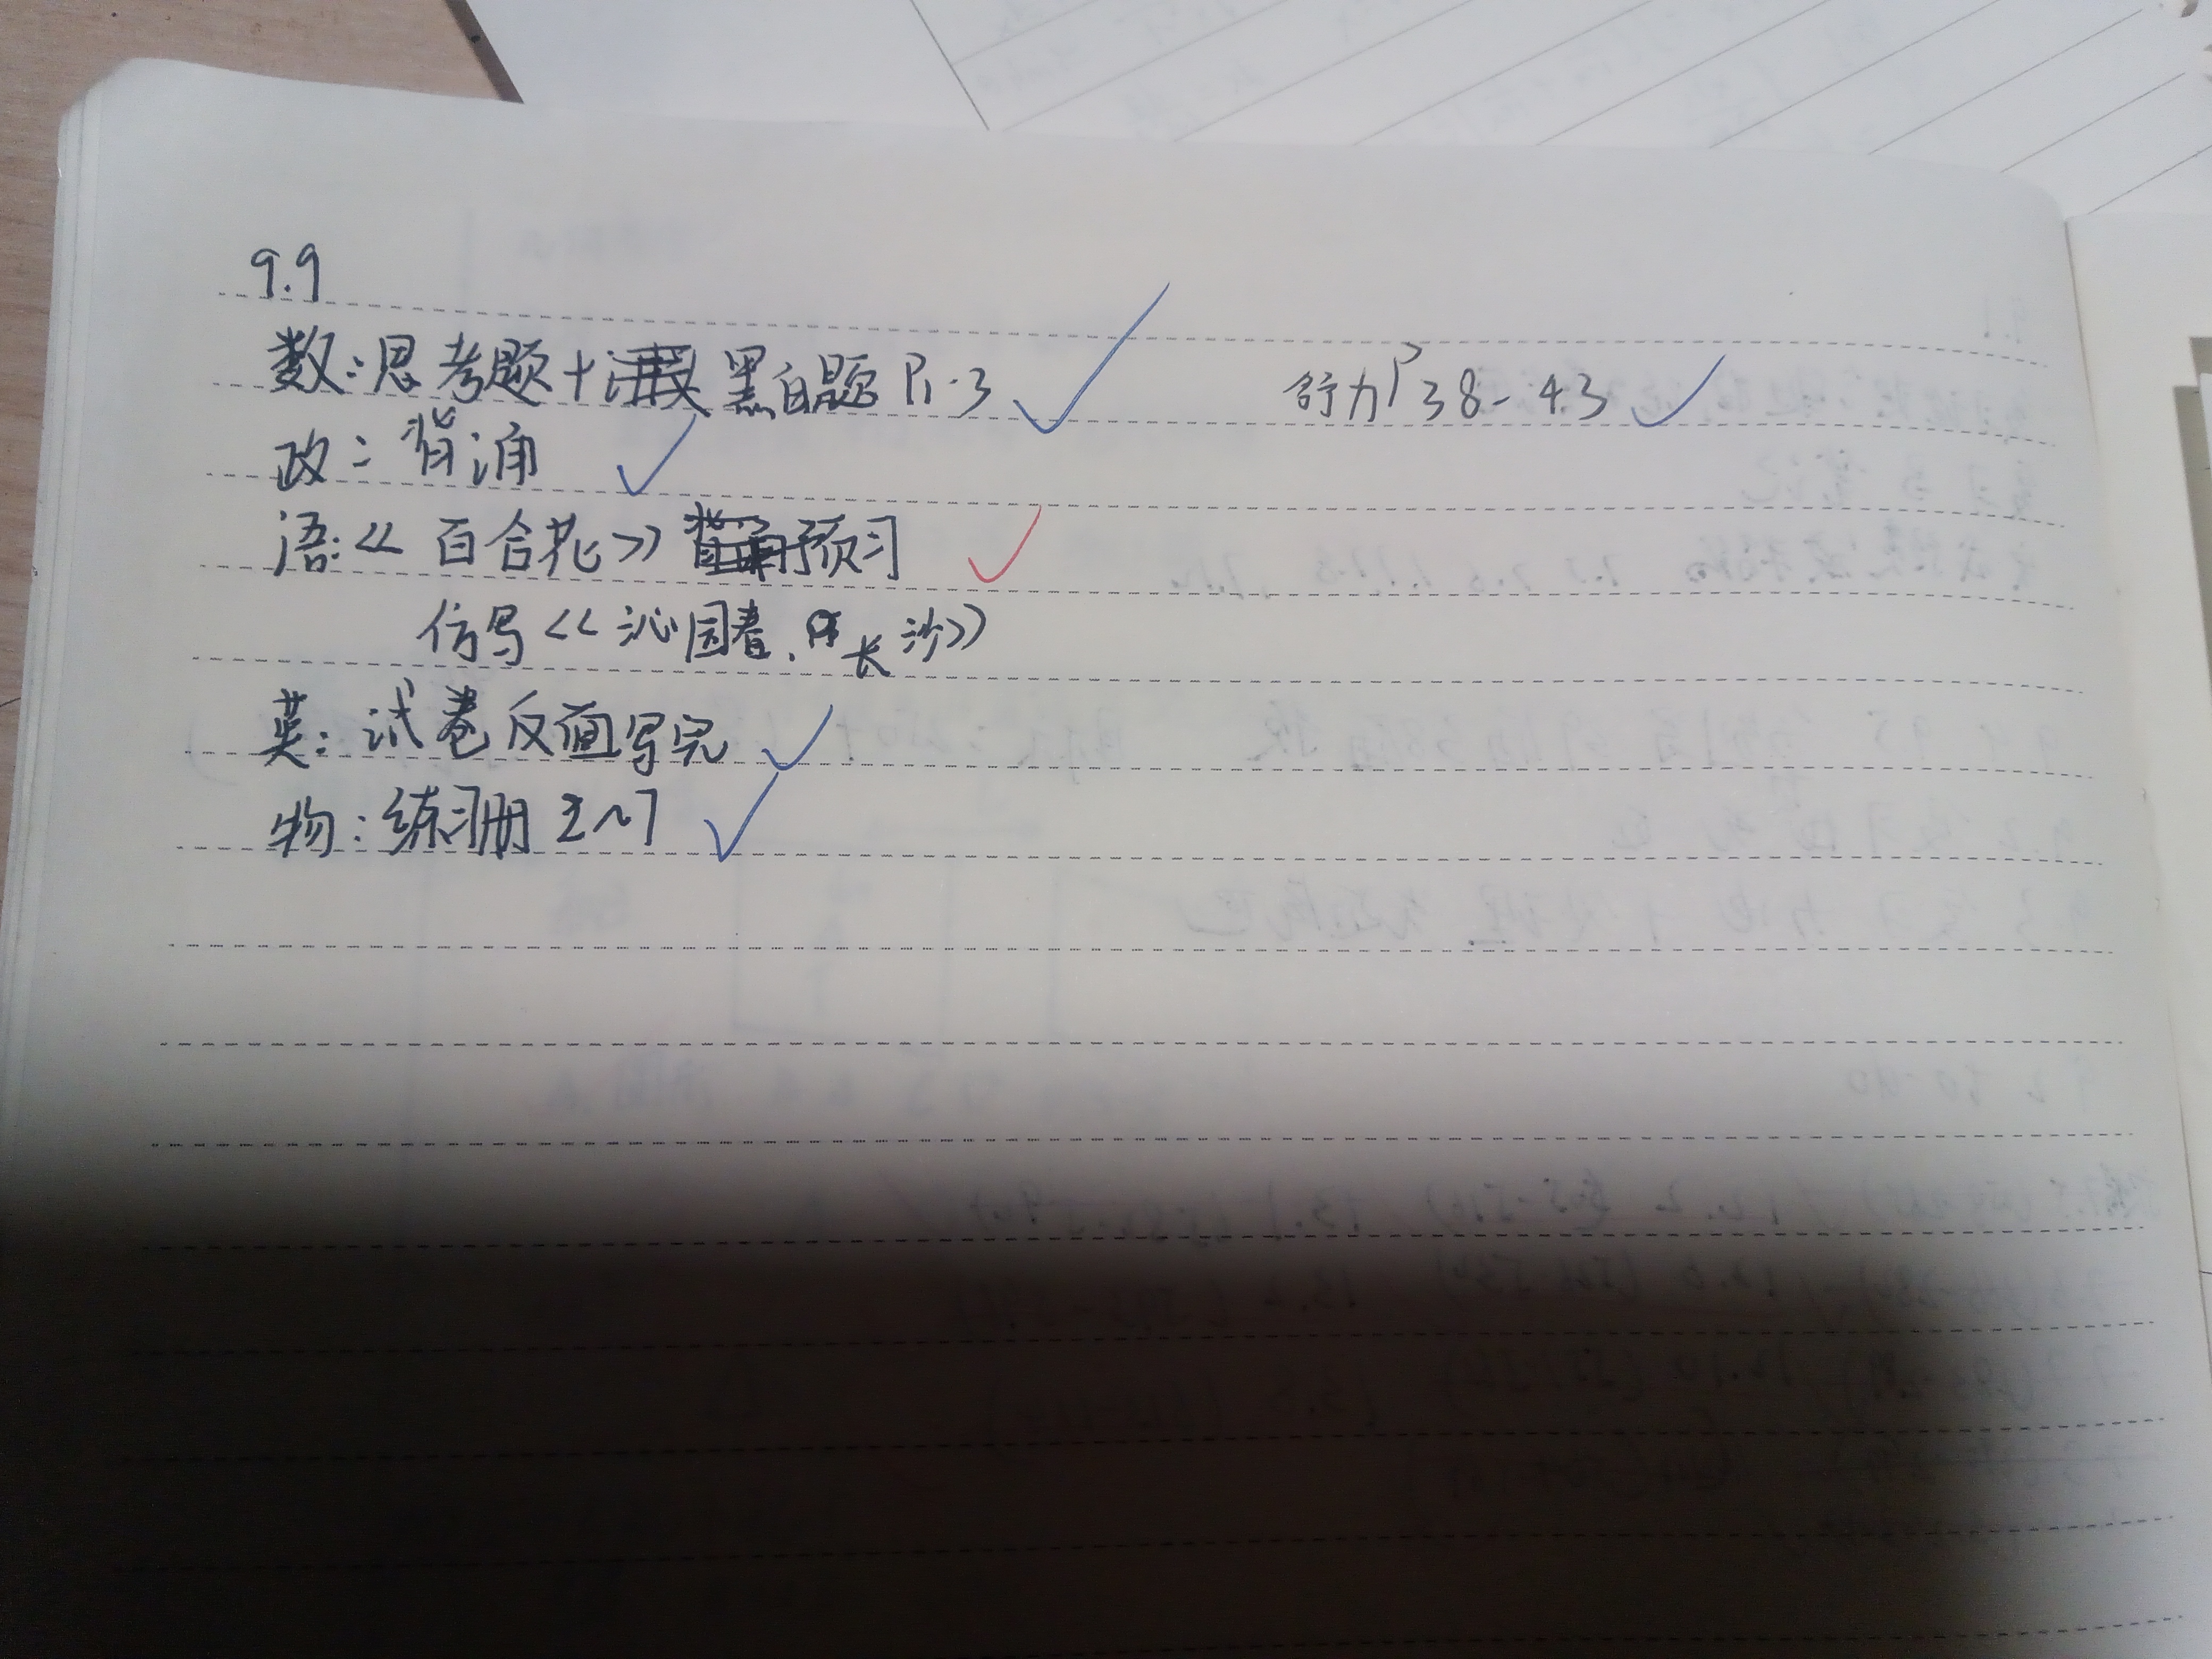 9.9
数:思考题+黑白题 P1-3 ✓ 舒力P38-43 ✓
政:背诵 ✓
语:《百合花》预习 ✓
仿写《沁园春.长沙》
英:试卷反面写完 ✓
物:练习册 2~7 ✓